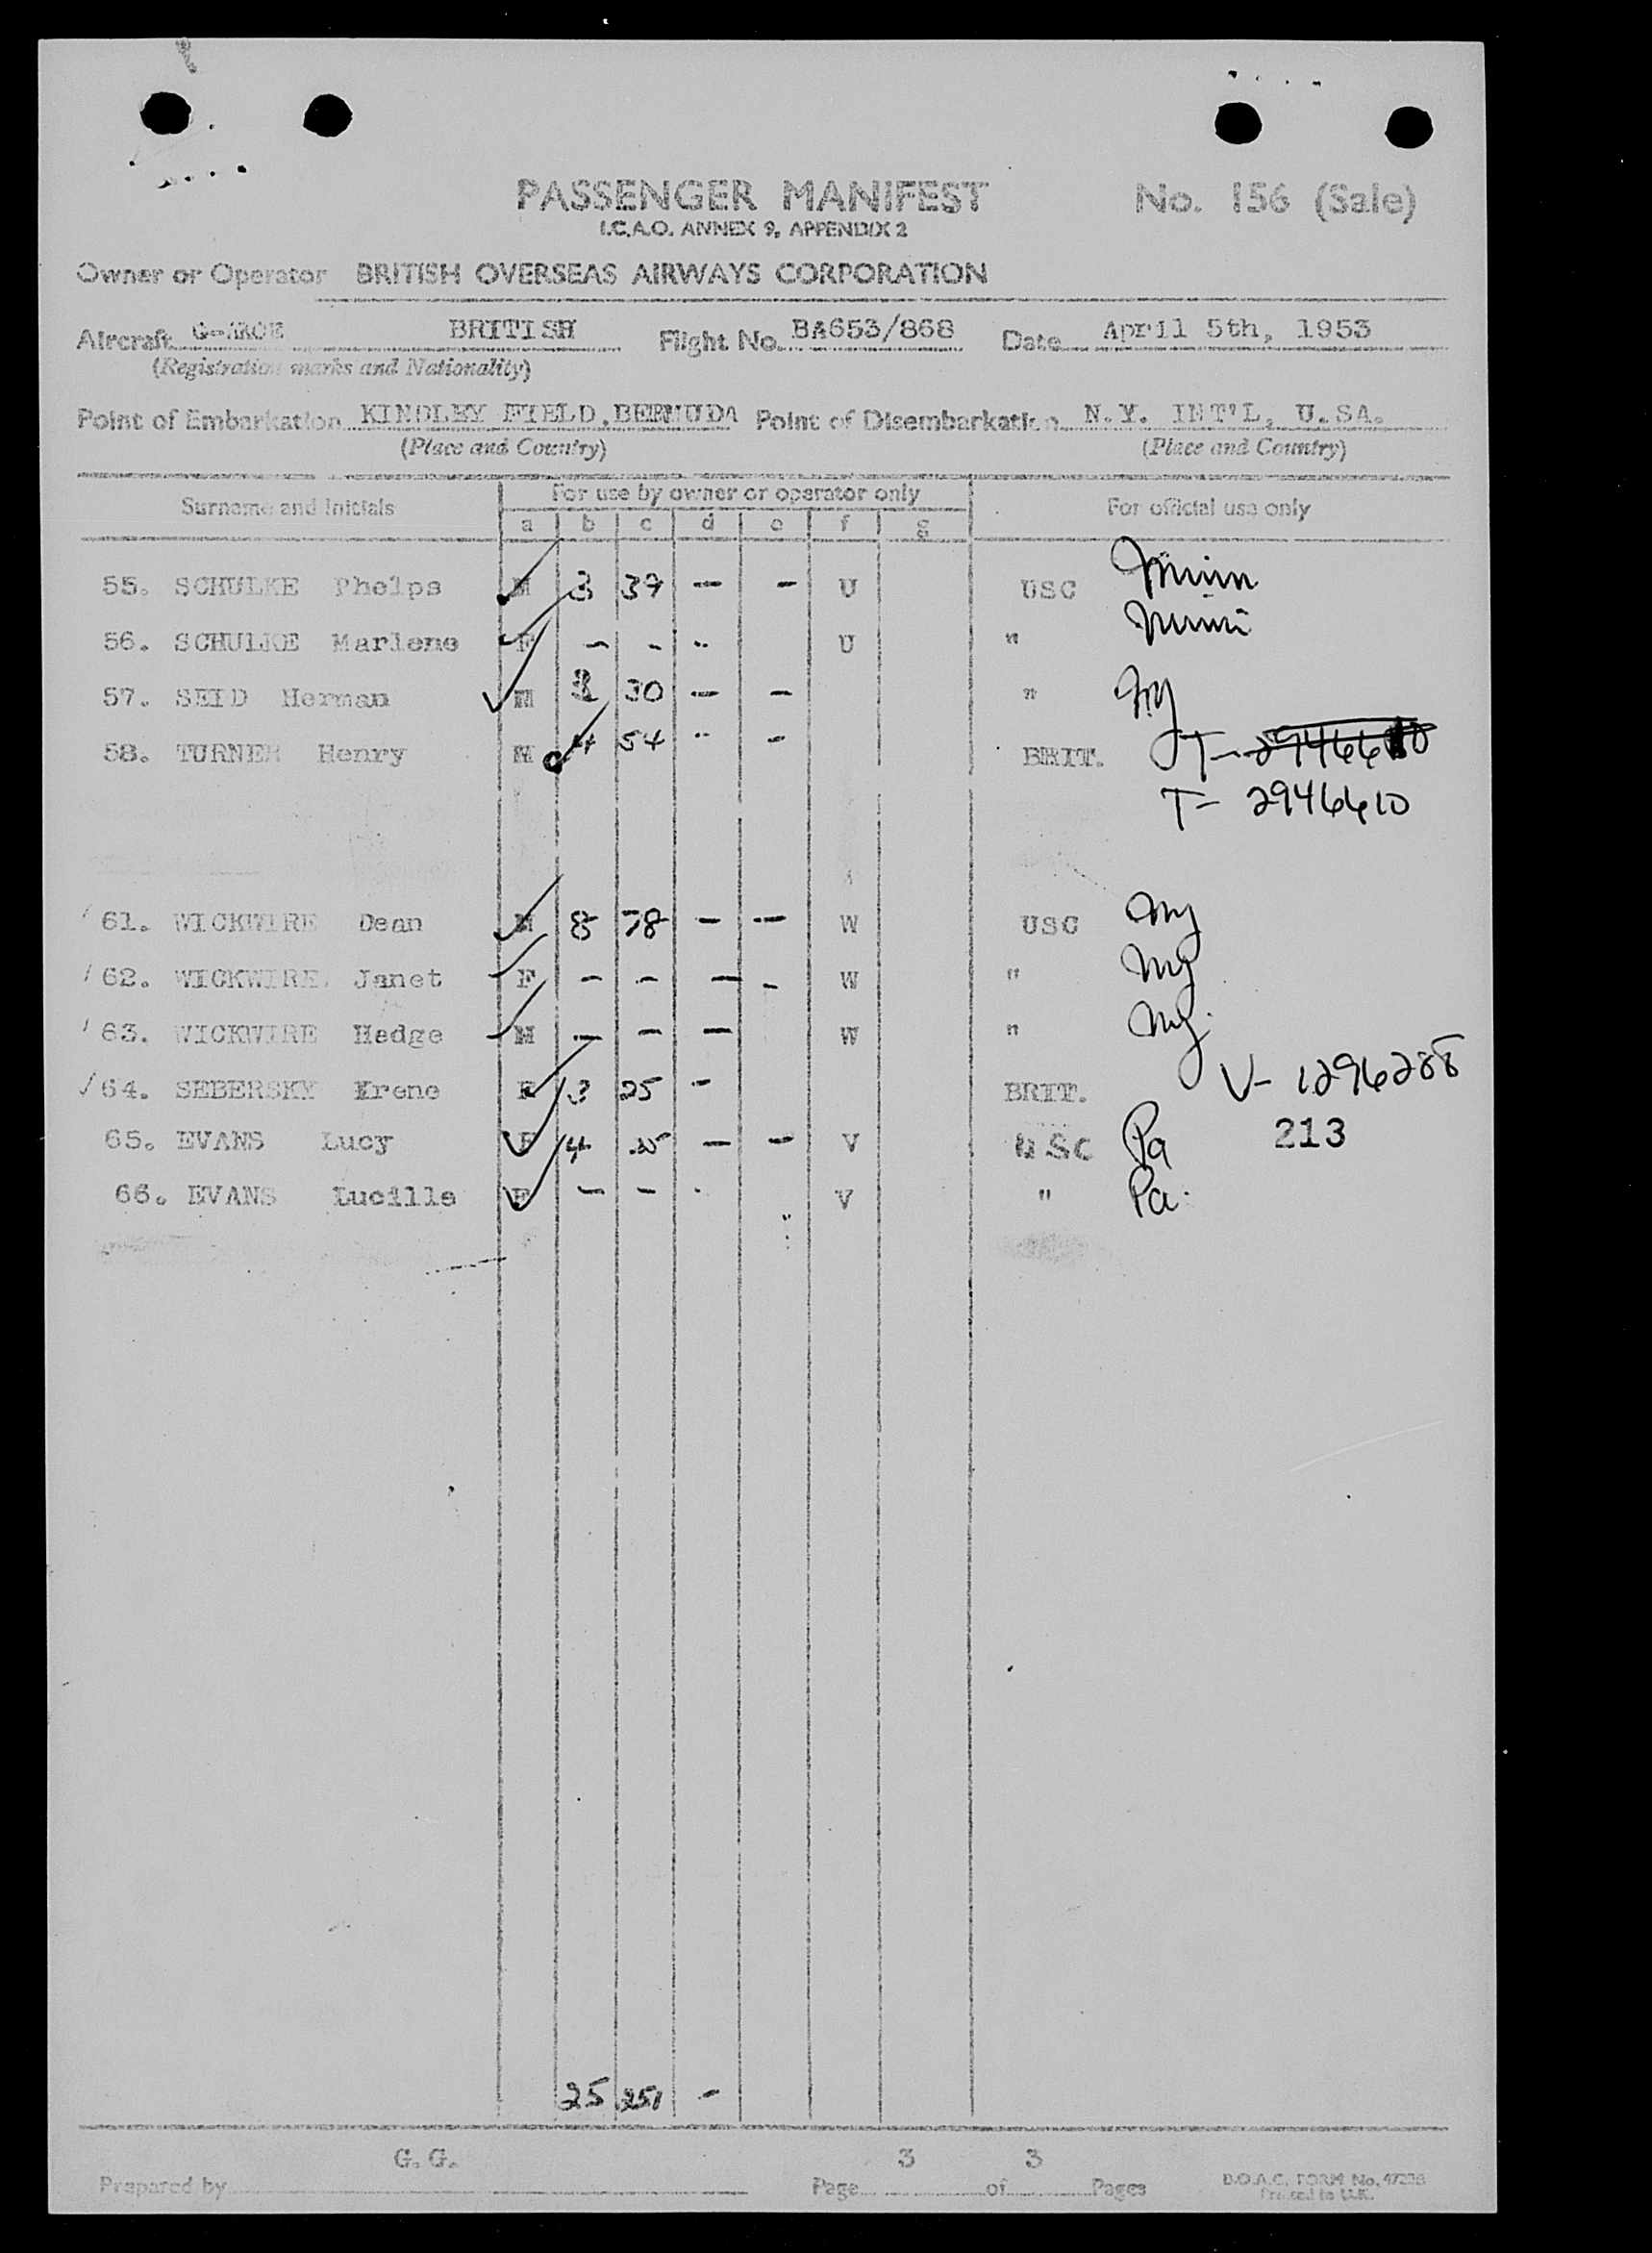 PASSENGER MANIFEST No. 156 (Sale)
I.C.A.O. ANNEX 9, APPENDIX 2
Owner or Operator BRITISH OVERSEAS AIRWAYS CORPORATION
Aircraft BRITISH Flight No. BA653/868 Date April 5th, 1953
(Registration marks and Nationality)
Point of Embarkation KINDLEY FIELD, BERMUDA Point of Disembarkation N.Y. INT'L, U.SA.
(Place and Country) (Place and Country)
Surname and Initials For use by owner or operator only For official use only
a b c d e f g
55. SCHULKE Phelps M 3 39 — — U USC Minn
56. SCHULKE Marlene F — - - U " Minn
57. SEID Herman M 3 30 — — " NY
58. TURNER Henry M 4 54 - - BRIT. T-2946610
T- 2946610
61. WICKWIRE Dean M 8 78 — — W USC NY
62. WICKWIRE Janet F — — — - W " NY
63. WICKWIRE Hedge M — — — W " NY.
64. SEBERSKY Irene F 3 25 - BRIT. V- 1296288
65. EVANS Lucy F 4 25 — — V USC Pa 213
66. EVANS Lucille F — — - V " Pa.
25 251 -
G. G. 3 3
Prepared by Page of Pages B.O.A.C. FORM No.
Printed in U.K.